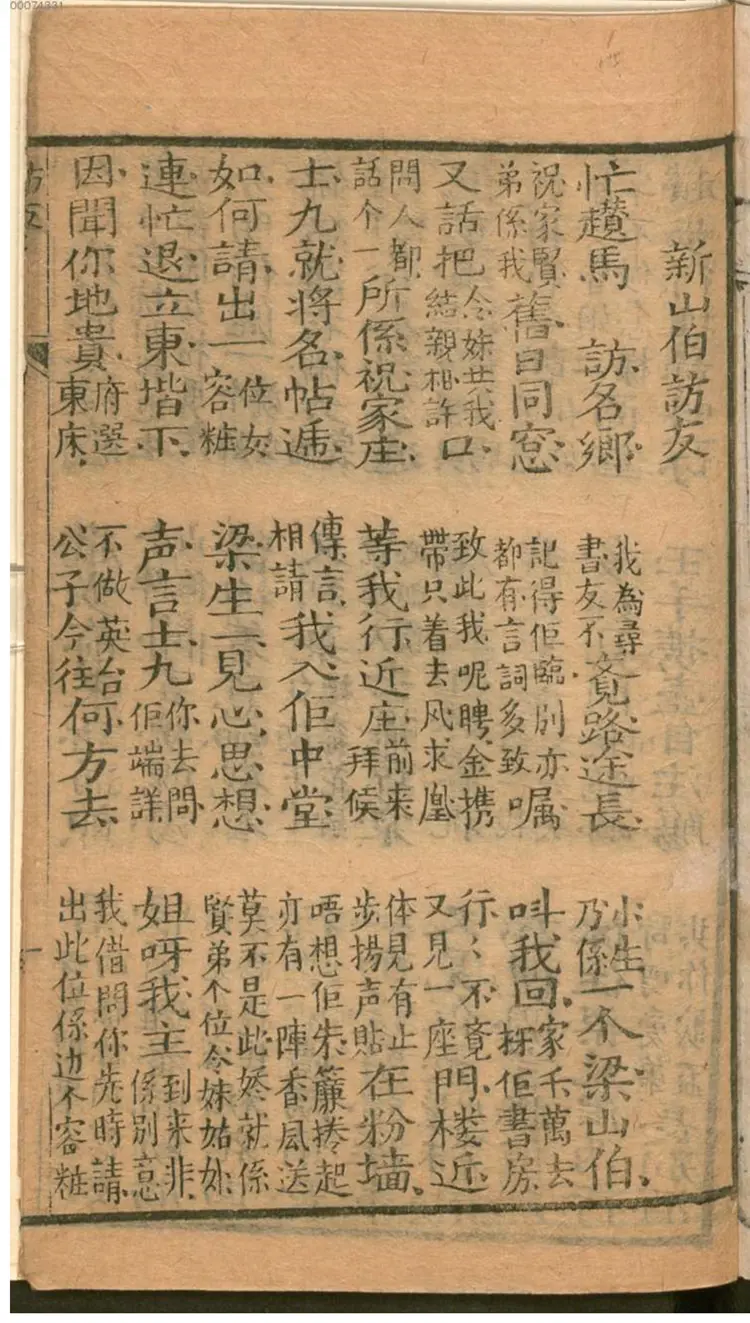 00074331
新山伯訪友
忙趲馬 訪名鄉 我為尋書友不覓路途長 小生乃係一个梁山伯
祝家賢弟係我舊日同窓 記得佢臨別亦都有言詞多致嘱 叫我回家千萬去探佢書房
又話把令妹共我結親相許口 致此我呢聘金携帶只着去风求凰 行〻不竟又見一座門楼近
問人都話个一所係祝家庄 等我行近庄前来拜候 体見有止步揚声貼在粉墙
士九就将名帖遞 傳言相請我入佢中堂 唔想佢朱簾捲起亦有一陣香風送
如何請出一位女容粧 梁生一見心思想 莫不是此嬌就係賢弟个位令妹姑娘
連忙退立東堦下 声言士九你去問佢端詳 姐呀我主到来非係別意
因聞你地貴府選東床 不做英台公子今往何方去 我借問你先時請出此位係边个容粧